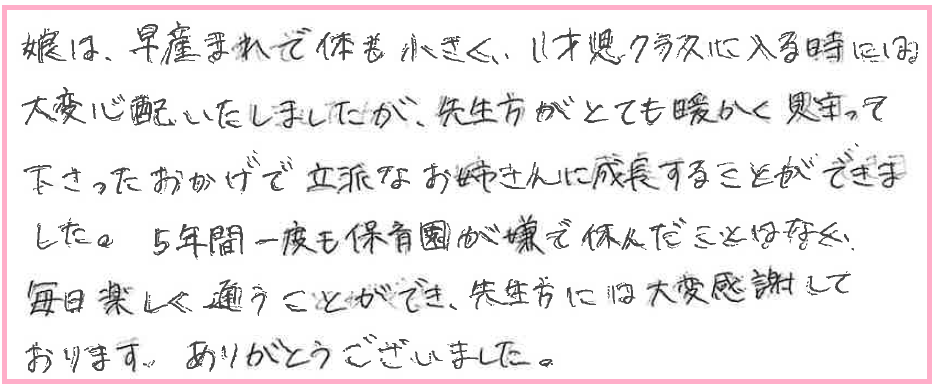 娘は、早産まれで体も小さく、1才児クラスに入る時には
大変心配いたしましたが、先生方がとても暖かく見守って
下さったおかげで立派なお姉さんに成長することができま
した。5年間一度も保育園が嫌で休んだことはなく、
毎日楽しく通うことができ、先生方には大変感謝して
おります。ありがとうございました。